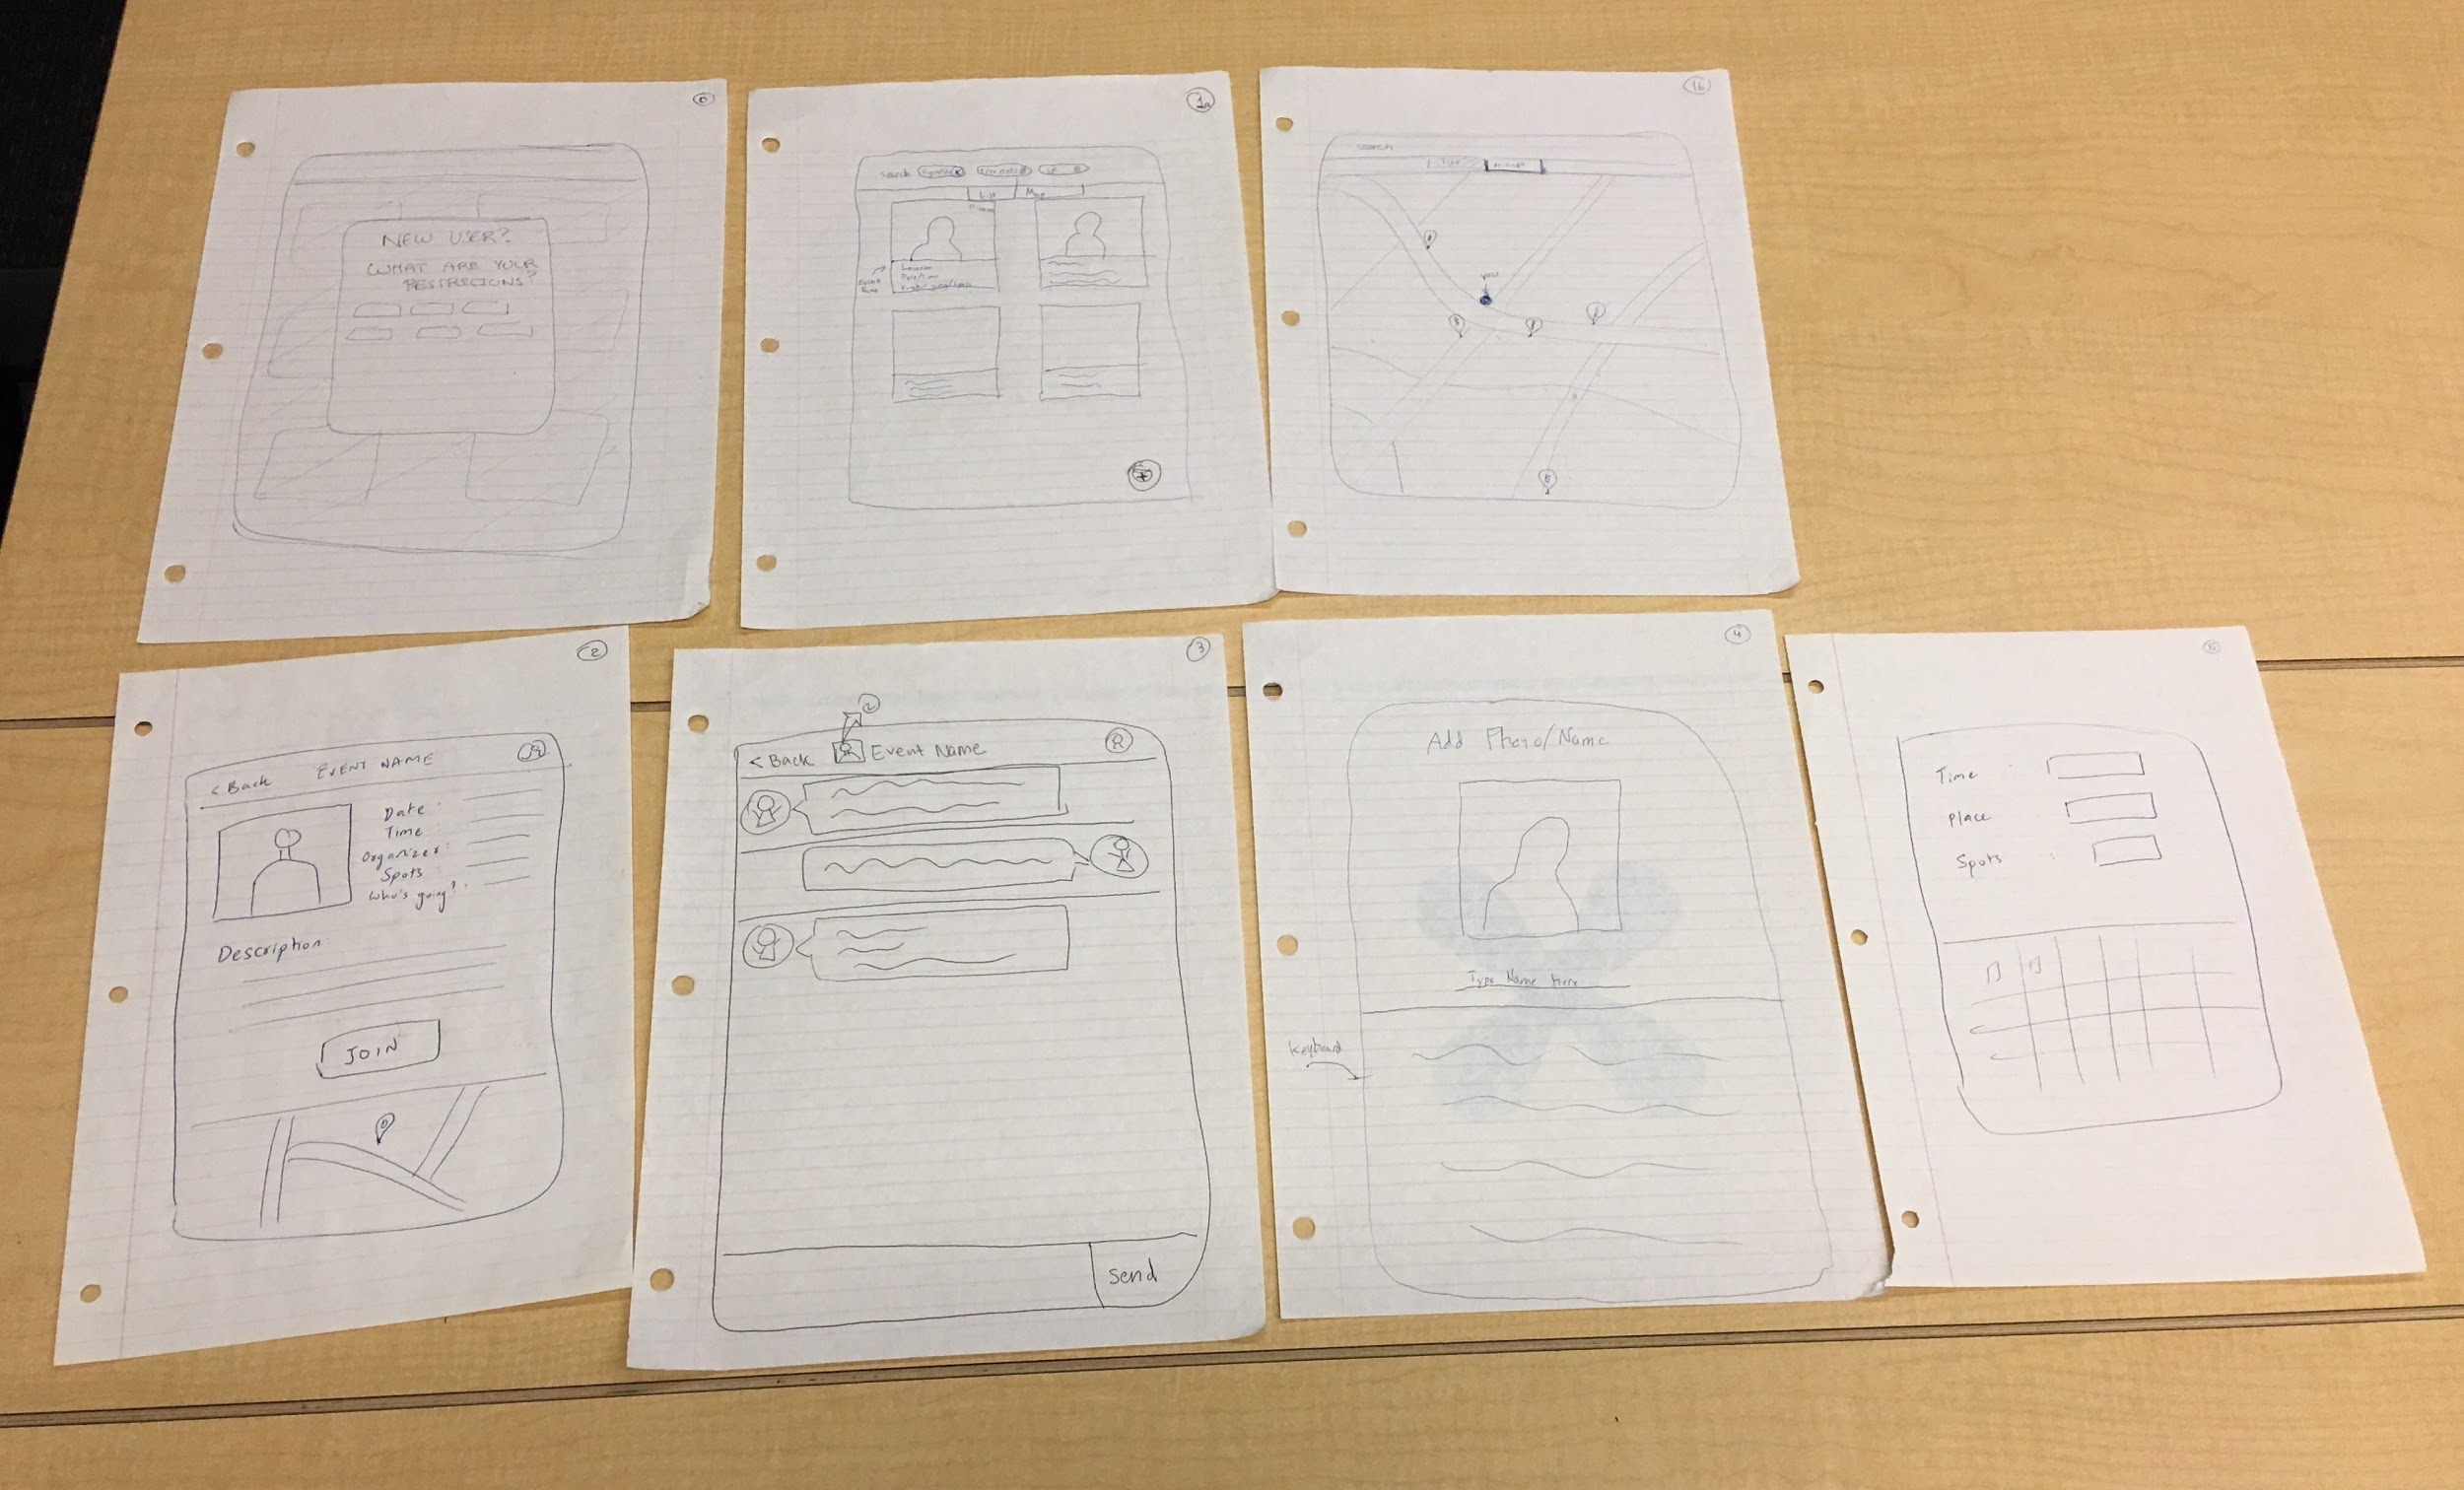 0
NEW USER?
WHAT ARE YOUR
RESTRICIONS?
1a
Search
List
Map
Location
Date/time
Event
Name
1b
search
you
2
< Back
EVENT NAME
Date :
Time :
Organizer:
Spots :
Who's going? :
Description
JOIN
3
2
< Back
Event Name
Send
4
Add Photo/Name
Type Name Here
Keyboard
5
Time :
Place
Spots :